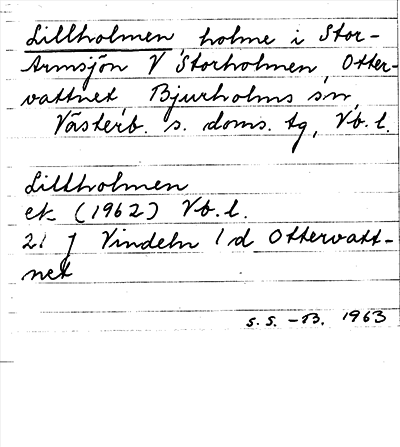 Lillholmen, holme i Stor-
Armsjön V Storholmen, Otter-
vattnet, Bjurholms sn,
Västerb. s. doms. tg, Vb. l.
Lillholmen
ek (1962) Vb. l.
21 J Vindeln 1 d Ottervatt-
net
S. S. - B. 1963